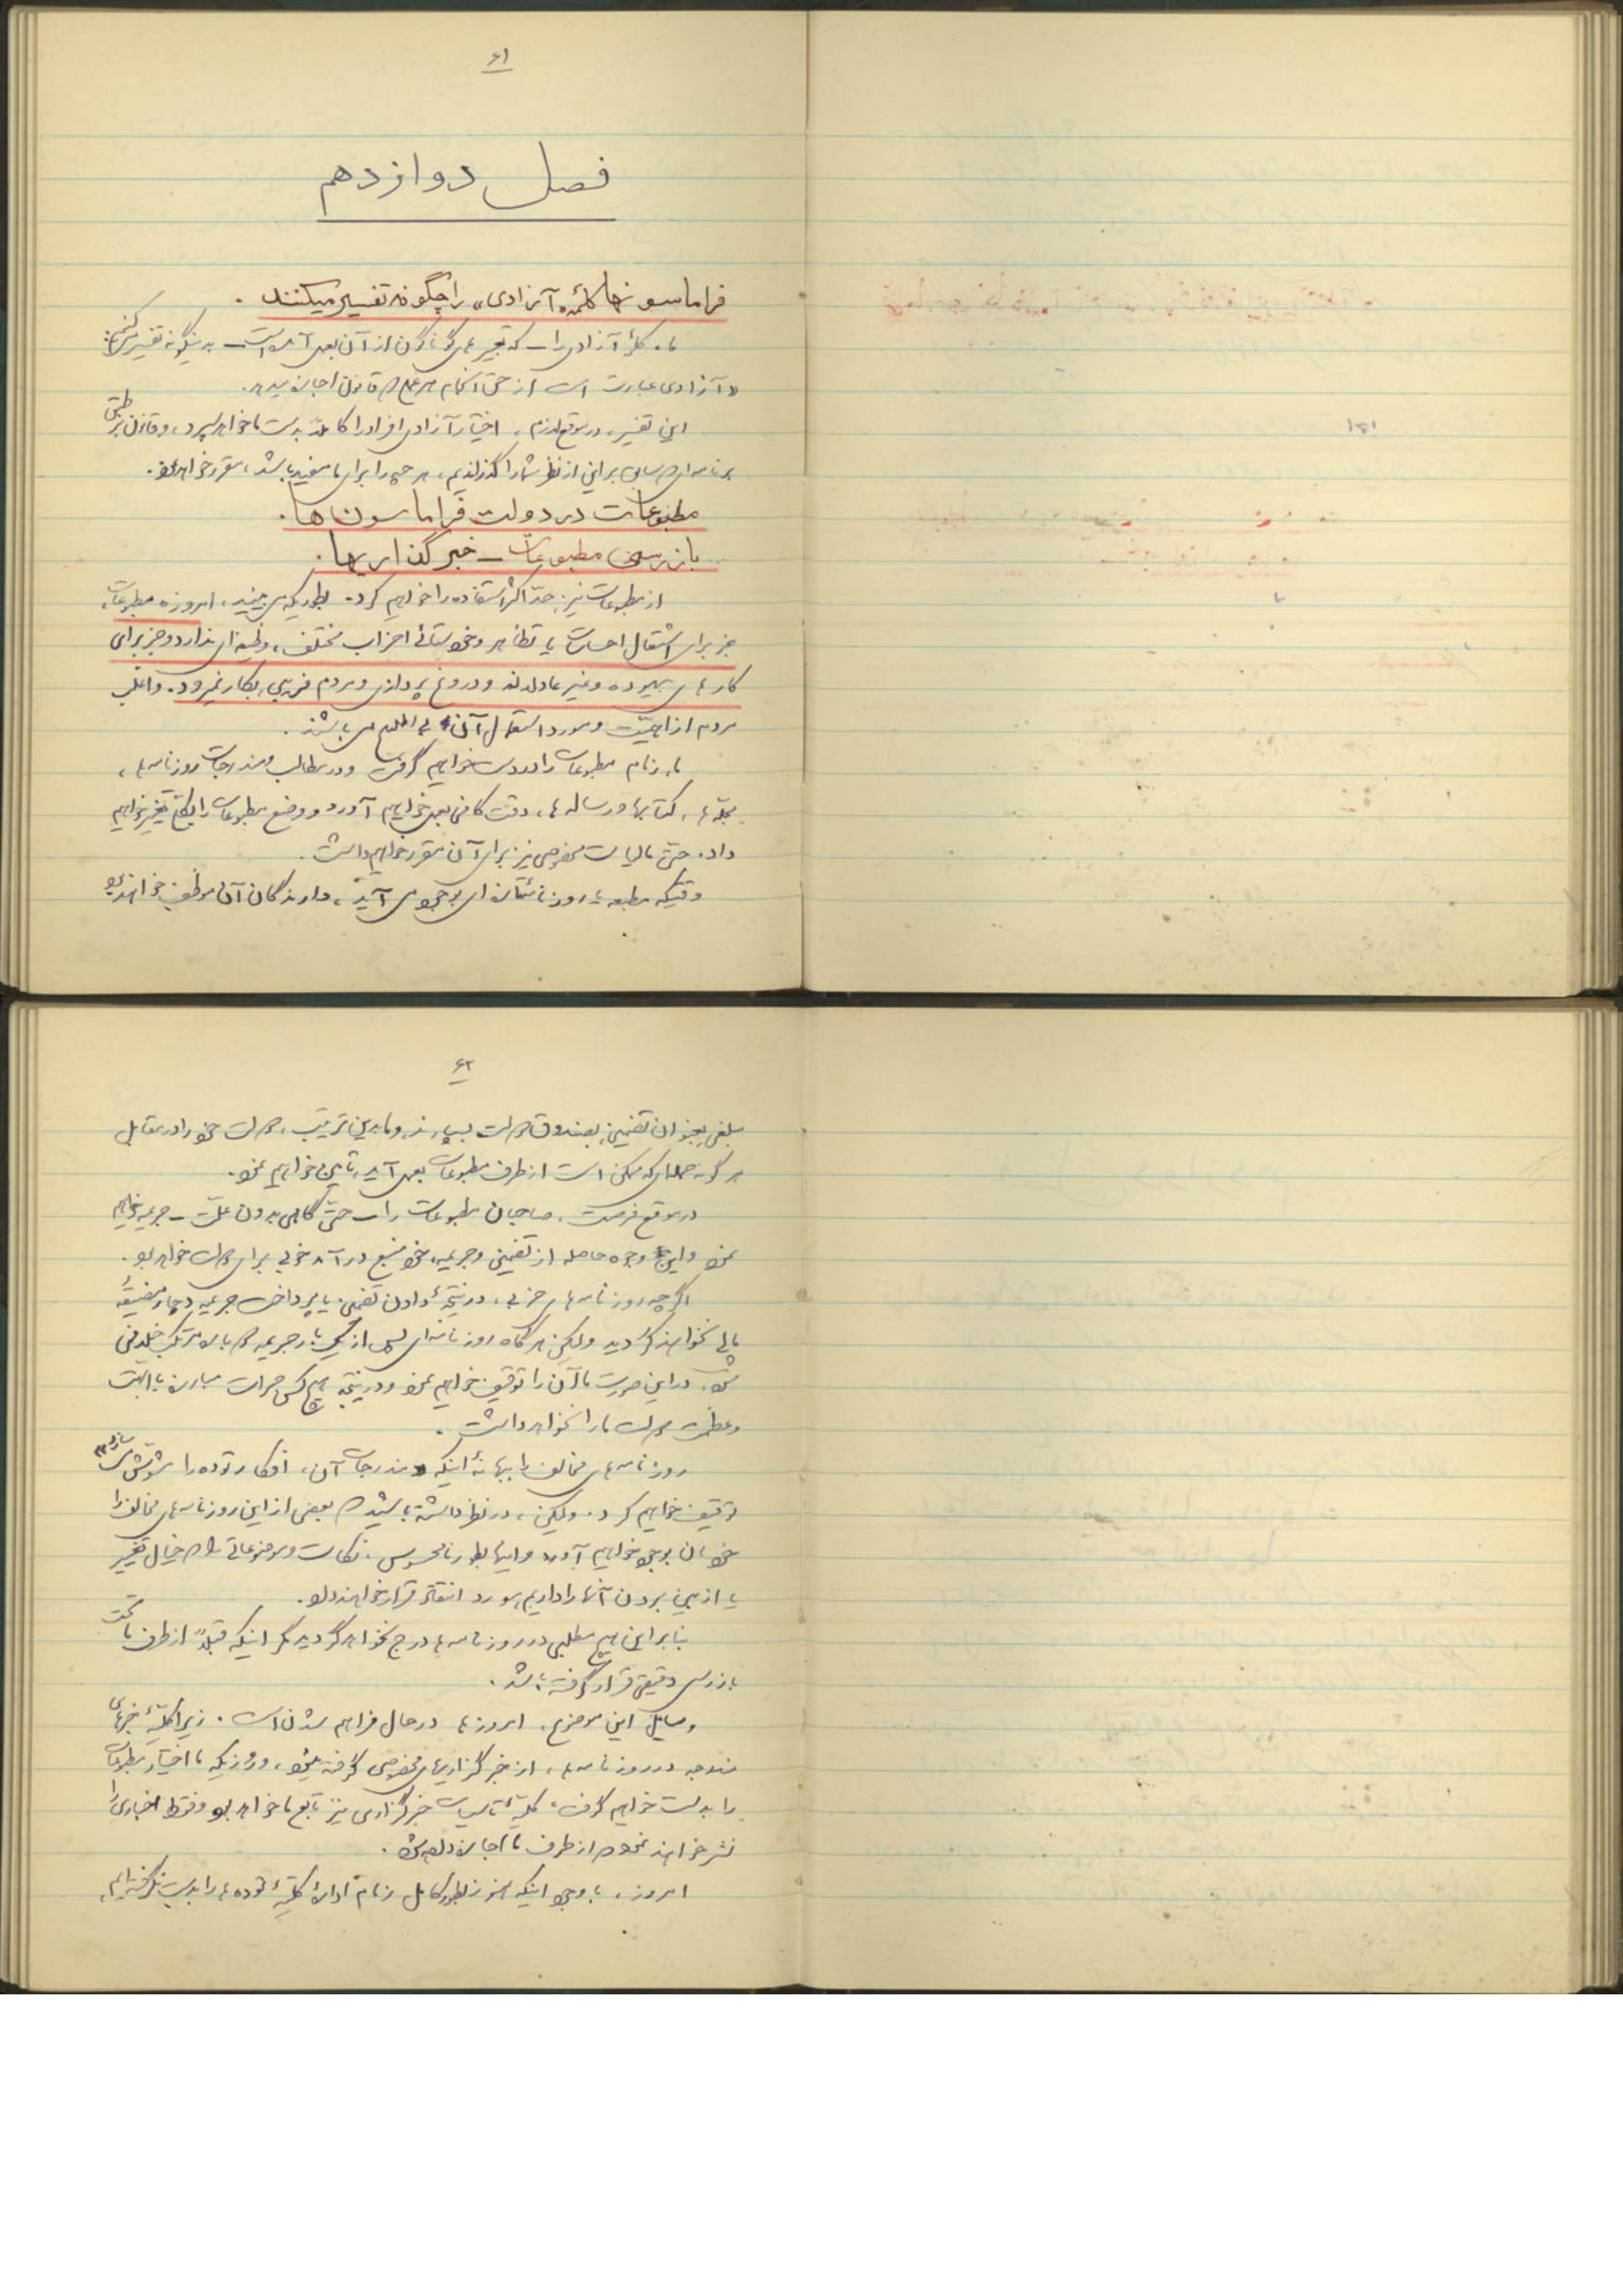 ۶۱
فصل دوازدهم
فراماسونها کلمهٔ «آزادی» را چگونه تفسیر میکنند.
ما، کلمهٔ آزادی را – که تعبیرهای گوناگون از آن بعمل آمده است – بدینگونه تفسیر میکنیم:
«آزادی عبارت است از حق انجام هر عملی که قانون اجازه بدهد.
این تفسیر، در موقع لازم، اختیار آزادی افراد را کاملاً بدست ما خواهد سپرد، و قانون بر طبق
برنامه‌ای که سابق بر این از نظر شما گذراندیم، هر چه را برای ما مفید باشد، مقرر خواهد نمود.
مطبوعات در دولت فراماسون‌ها.
بازرسی مطبوعات – خبرگذاریها.
از مطبوعات نیز، حدّ اکثر استفاده را خواهیم کرد. بطوریکه می‌بینید، امروزه مطبوعات،
جز برای اشتعال احساسات یا تظاهر و خودستائی احزاب مختلف، وظیفه‌ای ندارد و جز برای
کارهای بیهوده و غیر عادلانه و دروغ پردازی و مردم فریبی، بکار نمیرود. و اغلب
مردم از اهمیّت و مورد استعمال آن بی اطلاع می باشند.
ما، زمام مطبوعات را در دست خواهیم گرفت و در مطالب و مندرجات روزنامه‌ها،
مجلّه‌ها، کتابها و رساله‌ها، دقت کافی بعمل خواهیم آورد و وضع مطبوعات را بکلّی تغییر خواهیم
داد. حتی مالیات مخصوصی نیز برای آن مقرر خواهیم داشت.
وقتیکه مطبعه یا روزنامهٔ تازه‌ای بوجود می آید، دارندگان آن موظف خواهند بود
۶۲
مبلغی بعنوان تضمین، بصندوق دولت بسپارند، و ما بدین ترتیب، دولت خود را در مقابل
هر گونه حمله‌ای که ممکن است از طرف مطبوعات بعمل آید، تأمین خواهیم نمود.
در موقع فرصت، صاحبان مطبوعات را – حتی گاهی بدون علّت – جریمه خواهیم
نمود و این وجوه حاصله از تضمین و جریمه، خود منبع درآمد خوبی برای دولت خواهد بود.
اگر چه روزنامه‌های حزبی، در نتیجهٔ دادن تضمین یا پرداخت جریمه دچار مضیقهٔ
مالی نخواهند گردید ولیکن هر گاه روزنامه‌ای پس از یک بار جریمه دوباره مرتکب خلافی
شود، در این صورت ما آن را توقیف خواهیم نمود و در نتیجه هیچ کس جرات مبارزه با ابّهت
و عظمت دولت ما را نخواهد داشت.
روزنامه‌های مخالف را ببهانهٔ اینکه مندرجات آن، افکار توده را مشوش می سازد،
توقیف خواهیم کرد. ولیکن، در نظر داشته باشید که بعضی از این روزنامه‌های مخالف را
خودمان بوجود خواهیم آورد و اینها بطور نامحسوس، نکات و موضوعاتی را که خیال تغییر
یا از بین بردن آنها را داریم، مورد انتقاد قرار خواهند داد.
بنابر این هیچ مطلبی در روزنامه‌ها درج نخواهد گردید مگر اینکه قبلاً از طرف ما تحت
بازرسی دقیقی قرار گرفته باشد.
وسایل این موضوع، امروزه‌ها در حال فراهم شدن است. زیرا کلیّهٔ خبرهای
مندرجه در روزنامه‌ها، از خبرگزاریهای مخصوصی گرفته میشود، و روزیکه ما اختیار مطبوعات
را بدست خواهیم گرفت، کلیّهٔ تاسیسات خبرگزاری نیز تابع ما خواهد بود و فقط اخباری را
نشر خواهند نمود که از طرف ما اجازه داده شود.
امروز، با وجود اینکه هنوز بطور کامل زمام ادارهٔ کلیّهٔ توده‌ها را بدست نگرفته‌ایم،